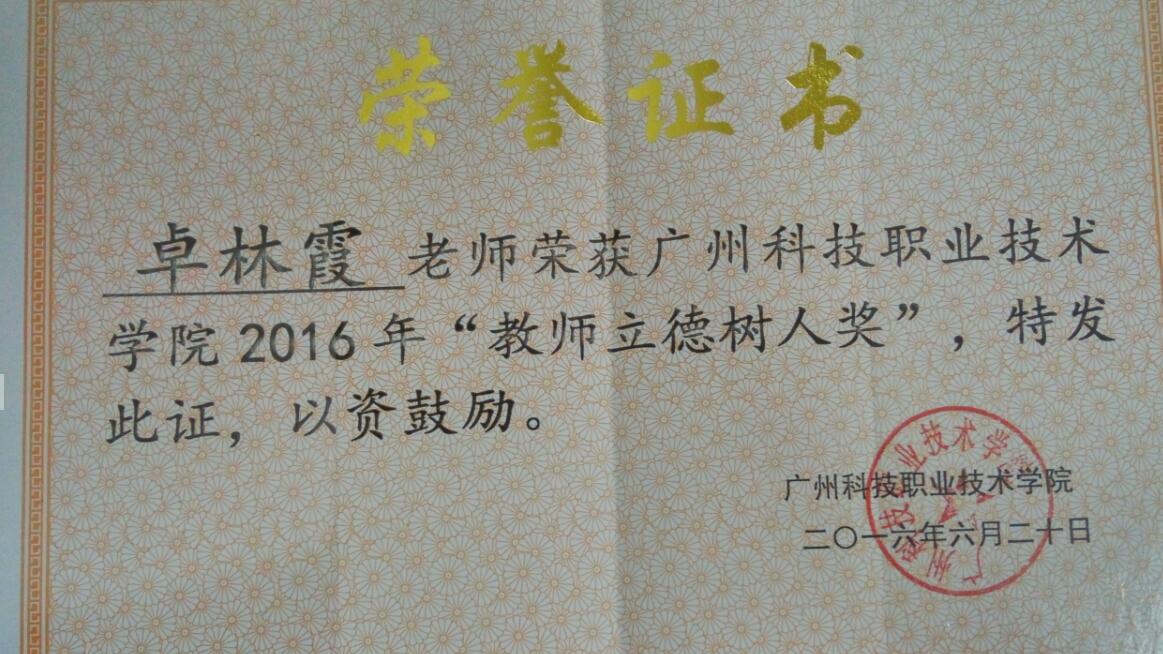 荣誉证书
卓林霞 老师荣获广州科技职业技术
学院2016年“教师立德树人奖”，特发
此证，以资鼓励。
广州科技职业技术学院
二〇一六年六月二十日
广州科技职业技术学院